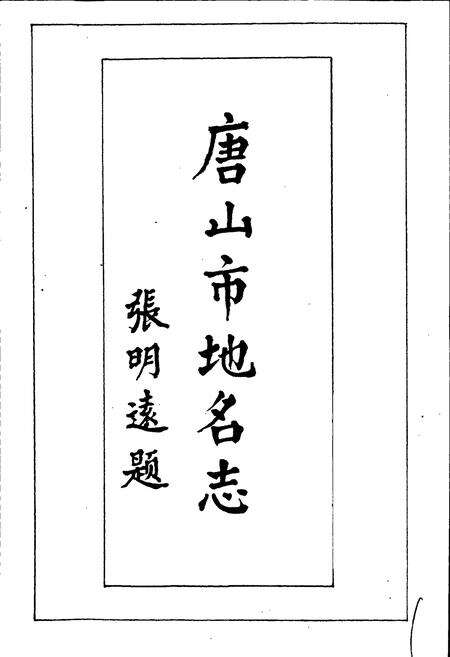 唐山市地名志
張明遠题